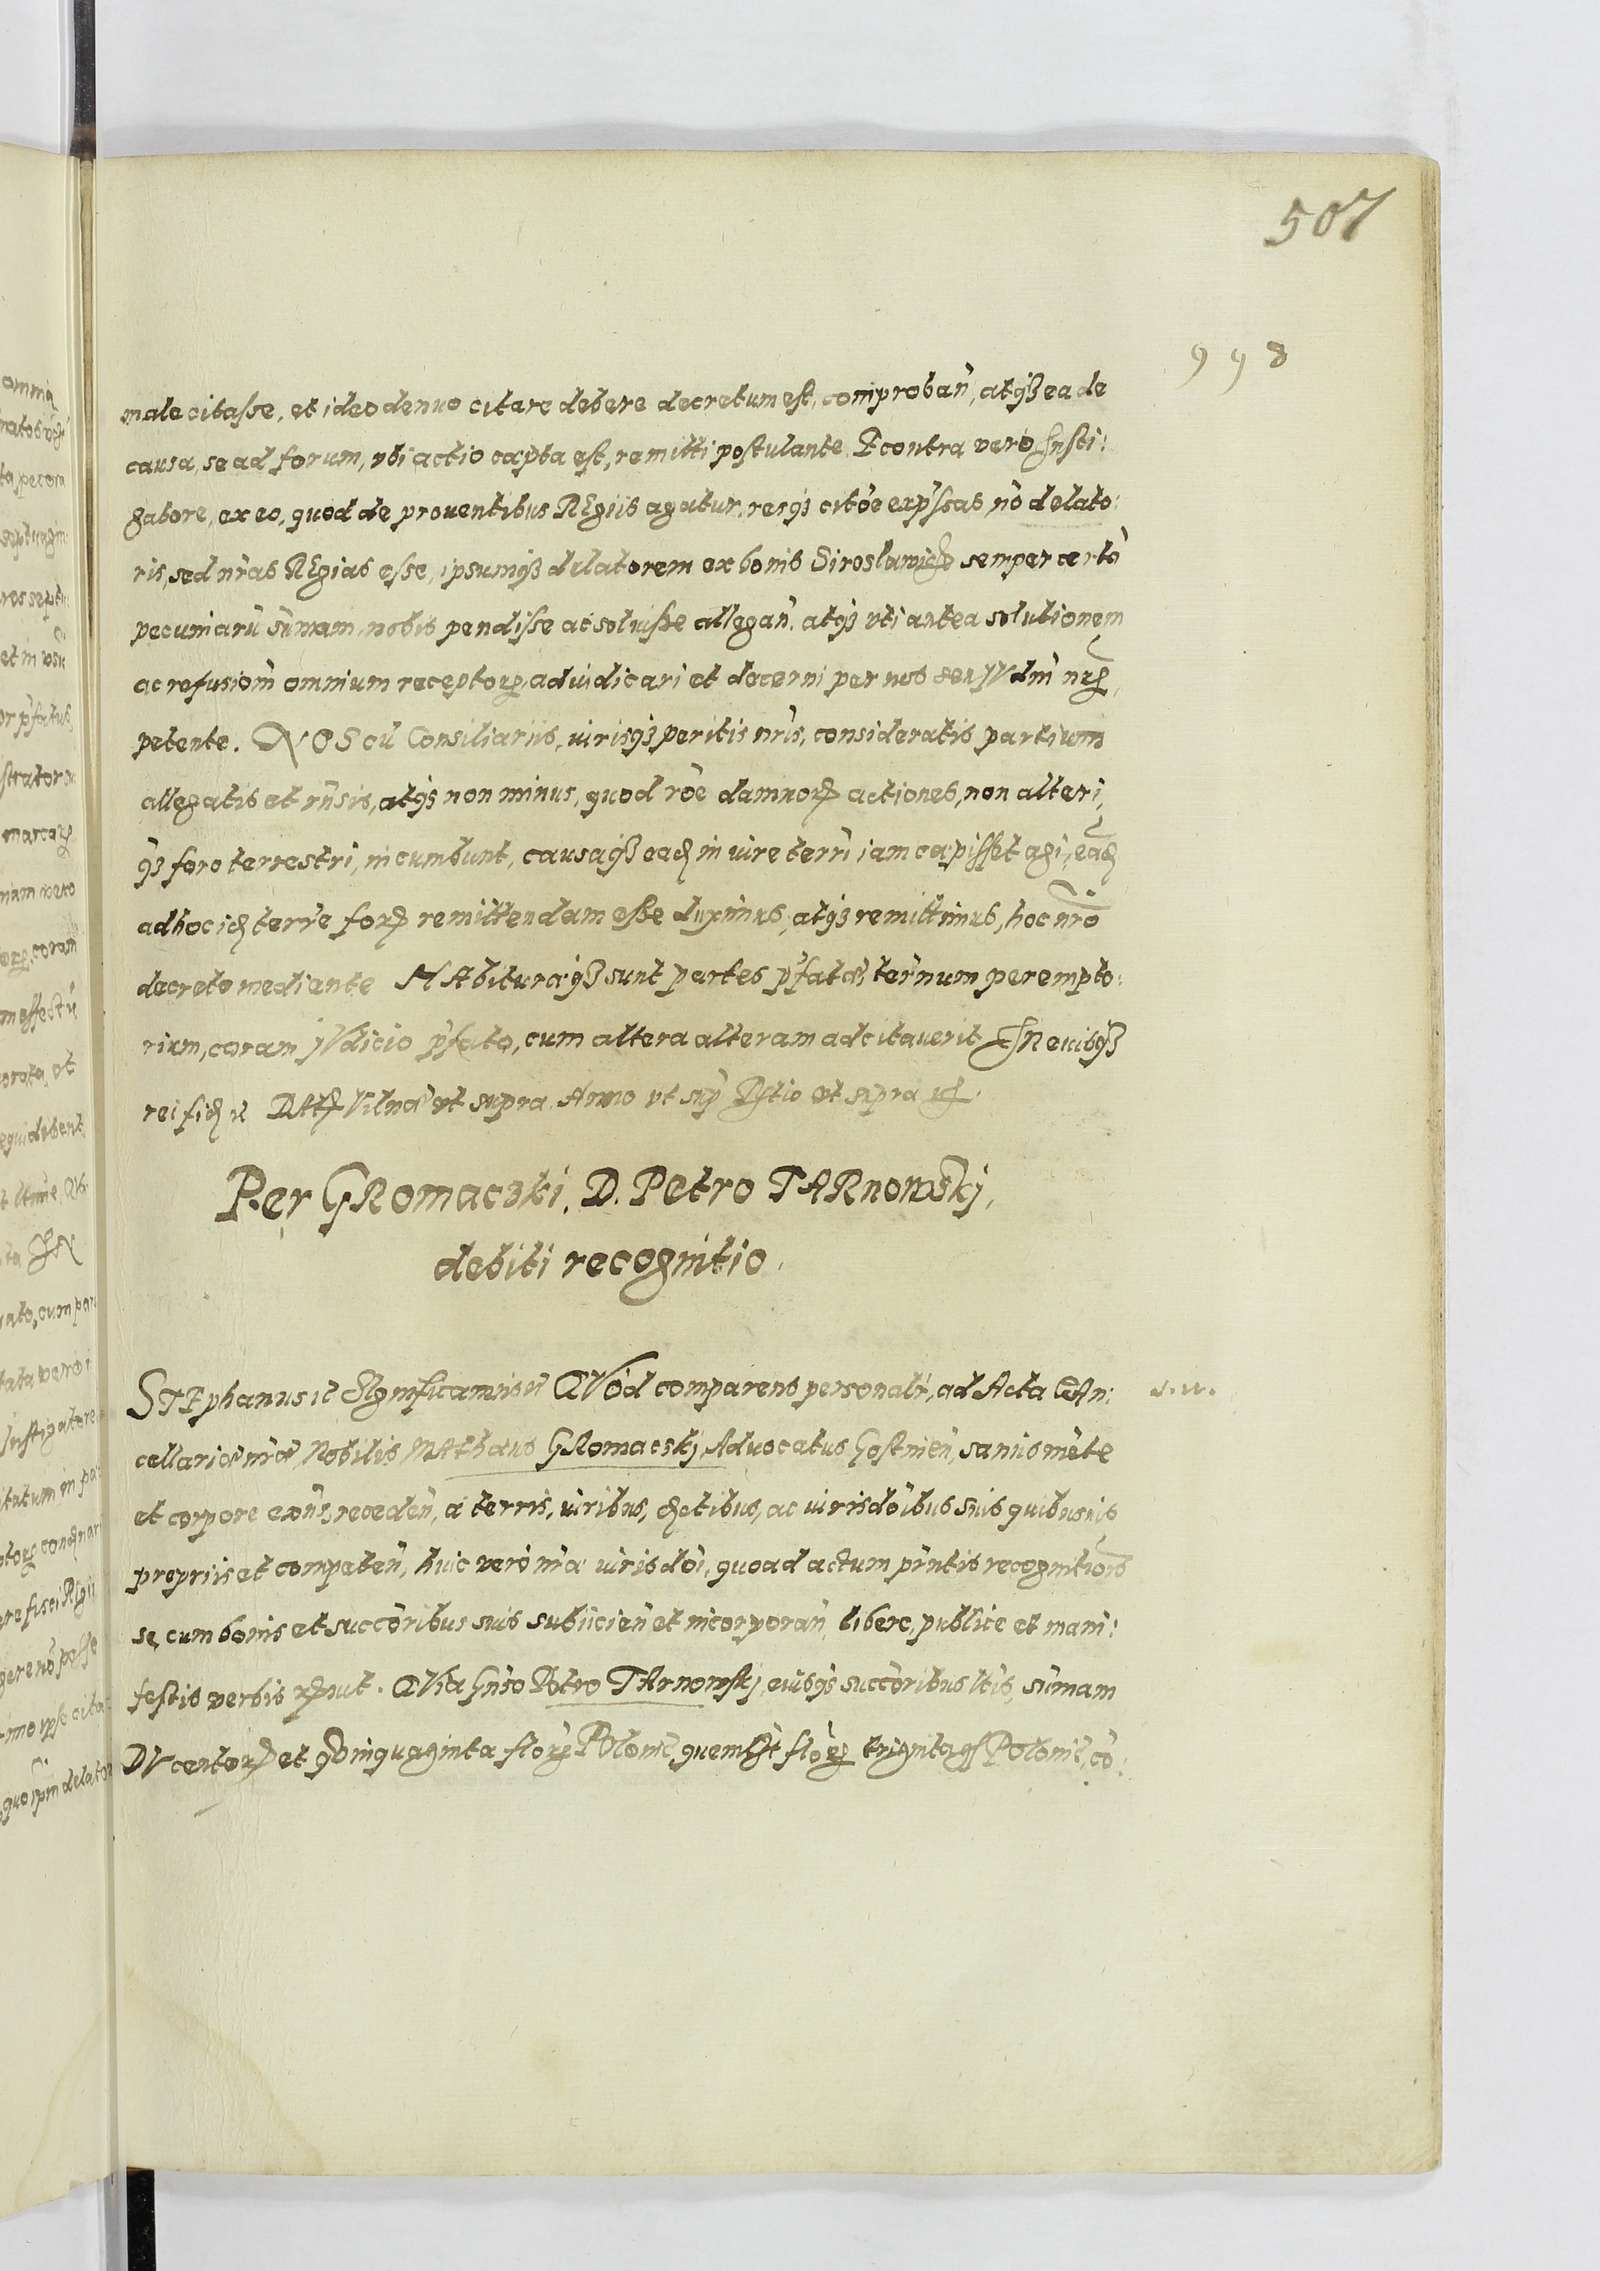 507
998
male citasse, et ideo denuo citare debere decretum est, comproban̄, atqȝ ea de
causa, se ad forum, vbi actio capta est, remitti postulante. E contra vero Insti:
gatore, ex eo, quod de prouentibus REgiis agatur, resqȝ citōe exp̄ssas nō delato:
ris, sed nr̄as REgias esse, ipsumqȝ delatorem ex bonis semper certā
pecuniarū sūmam nobis pendisse ac soluisse allegan̄. atqȝ vti antea solutionem
ac refusiom̄ omnium receptoꝝ, adiudicari et decerni per nos seu IVdiū nr̄ꝝ,
petente. NOS cū Consiliariis, iurisqȝ peritis nr̄is, consideratis partium
allegatis et rn̄sis, atqȝ non minus, quod rōe damnoꝝ actiones, non alteri,
qȝ foro terrestri, incumbunt, causaqȝ eadꝫ in iure terrī iam cæpisset agi, eadꝫ
ad hoc idꝫ terrē foꝝ remittendam esse duximus, atqȝ remittimus, hoc nr̄o
decreto mediante HAbituræqȝ sunt partes p̄fatæ, ter̄num perempto:
rium, coram IVdicio p̄fato, cum altera alteram adcitauerit IN euisqȝ
rei fidꝫ DAtꝫ Vilnæ vt supra Anno vt sup̄ vt supra
Per GRomaczki, D. PEtro TARnowskj,
debiti recognitio.
STEphanus ꝛc SIgnificamus ꝛc QVod comparens personalr̄, ad Acta CAn:
s. w.
cellariæ nr̄æ Nobilis MAthæus GRomacskj Aduocatus Gostinen̄, sanus mēte
et corpore exn̄s, receden̄, a terris, iuribus, dꝫctibus, ac iurisdōibus suis quibusuis
propriis et competen̄, huic vero nr̄æ iurisdōi, quoad actum pn̄tis recognitiōis
se, cum bonis et succōribus suis subiicien̄ et incorporan̄, libere, publice et mani:
festis verbis QVia Gn̄so PEtro TArnowskj eiusqȝ succōribus ltīs, sūmam
DVcentoꝝ et qVinquaginta floꝝ POlonīc, quemlꝫt floꝝ trigintaqȝ POlonīc, cō: